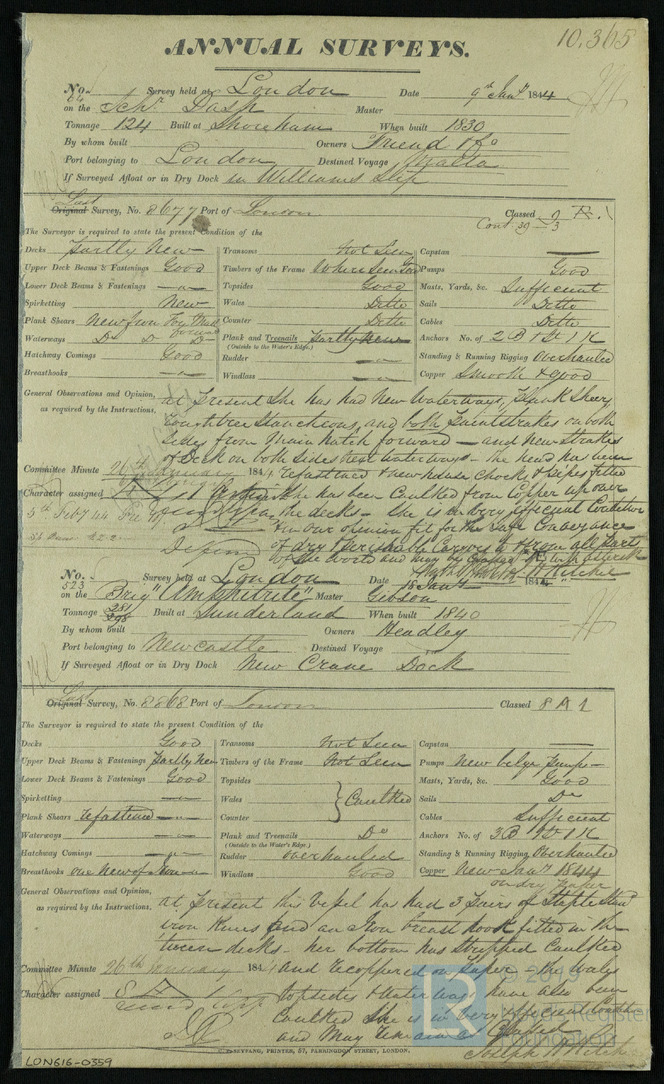 10,365
ANNUAL SURVEYS.
No. 64 Survey held at London Date 9th Jany 1844
on the Schr Dash Master
Tonnage 124 Built at Shoreham When built 1830
By whom built Owners Friend & Co
Port belonging to London Destined Voyage Malta
If Surveyed Afloat or in Dry Dock in Williams Slip
Last
Original Survey, No. 8677 Port of London Classed
Cont 39-3
The Surveyor is required to state the present Condition of the
Decks partly New Transoms Not Seen Capstan —
Upper Deck Beams & Fastenings Good Timbers of the Frame Where Seen Good Pumps Good
Lower Deck Beams & Fastenings —"— Topsides Good Masts, Yards, &c. Sufficient
Spirketting New Wales Ditto Sails Ditto
Plank Shears New from Fore Mast forward Counter Ditto Cables Ditto
Waterways Do Do Do Plank and Treenails partly New Anchors No. of 2 B 1 St 1 K
(Outside to the Water's Edge.)
Hatchway Comings Good Rudder —"— Standing & Running Rigging Overhauled
Breasthooks —"— Windlass —"— Copper Smooth & good
General Observations and Opinion, at present She has had New Waterways, Plank Sheers,
as required by the Instructions. Roughtree Stanchions, and both paintstrakes on both
sides from Main hatch forward — and New Strakes
of Deck on both sides next waterways — the head has been
Committee Minute 26th January 1844 refastened & new hause Chocks & pipes fitted
Character assigned She has been Caulked from Copper up over
5th Feby 44 the decks — She is in very efficient Condition
& in our opinion fit for the safe Conveyance
Deferred of dry & perishable Cargoes to & from all parts
of the World and may be
No. 523 Survey held at London Date 18 Jany 1844
on the Brig "Amphitrite" Master Gibson
Tonnage 281 Built at Sunderland When built 1840
By whom built Owners Headley
Port belonging to Newcastle Destined Voyage
If Surveyed Afloat or in Dry Dock New Crane Dock
Last
Original Survey, No. 8868 Port of London Classed 8 A 1
The Surveyor is required to state the present Condition of the
Decks Good Transoms Not Seen Capstan —
Upper Deck Beams & Fastenings Partly New Timbers of the Frame Not Seen Pumps New bilge pump
Lower Deck Beams & Fastenings Good Topsides Masts, Yards, &c. Good
Spirketting —"— Wales } Caulked Sails Do
Plank Shears refastened Counter Cables Sufficient
Waterways —"— Plank and Treenails Do Anchors No. of 3 B 1 St 1 K
(Outside to the Water's Edge.)
Hatchway Comings —"— Rudder Overhauled Standing & Running Rigging Overhauled
Breasthooks one New of Iron Windlass Good Copper New Jany 1844
on dry paper
General Observations and Opinion, at present this Vessel has had 3 pairs of Staple Stand
as required by the Instructions. iron Knees and an Iron breast hook fitted in the
tween decks — her bottom has stripped Caulked
Committee Minute 26th January 1844 and recoppered on paper — the wales
Character assigned topsides & Waterways have also been
Caulked She is in very efficient Condition
and May remain as Classed
Joseph H Ritchie
C. PREYFANG, PRINTER, 57, FARRINGDON STREET, LONDON.
LON616-0359
© 20
Register
Foundation